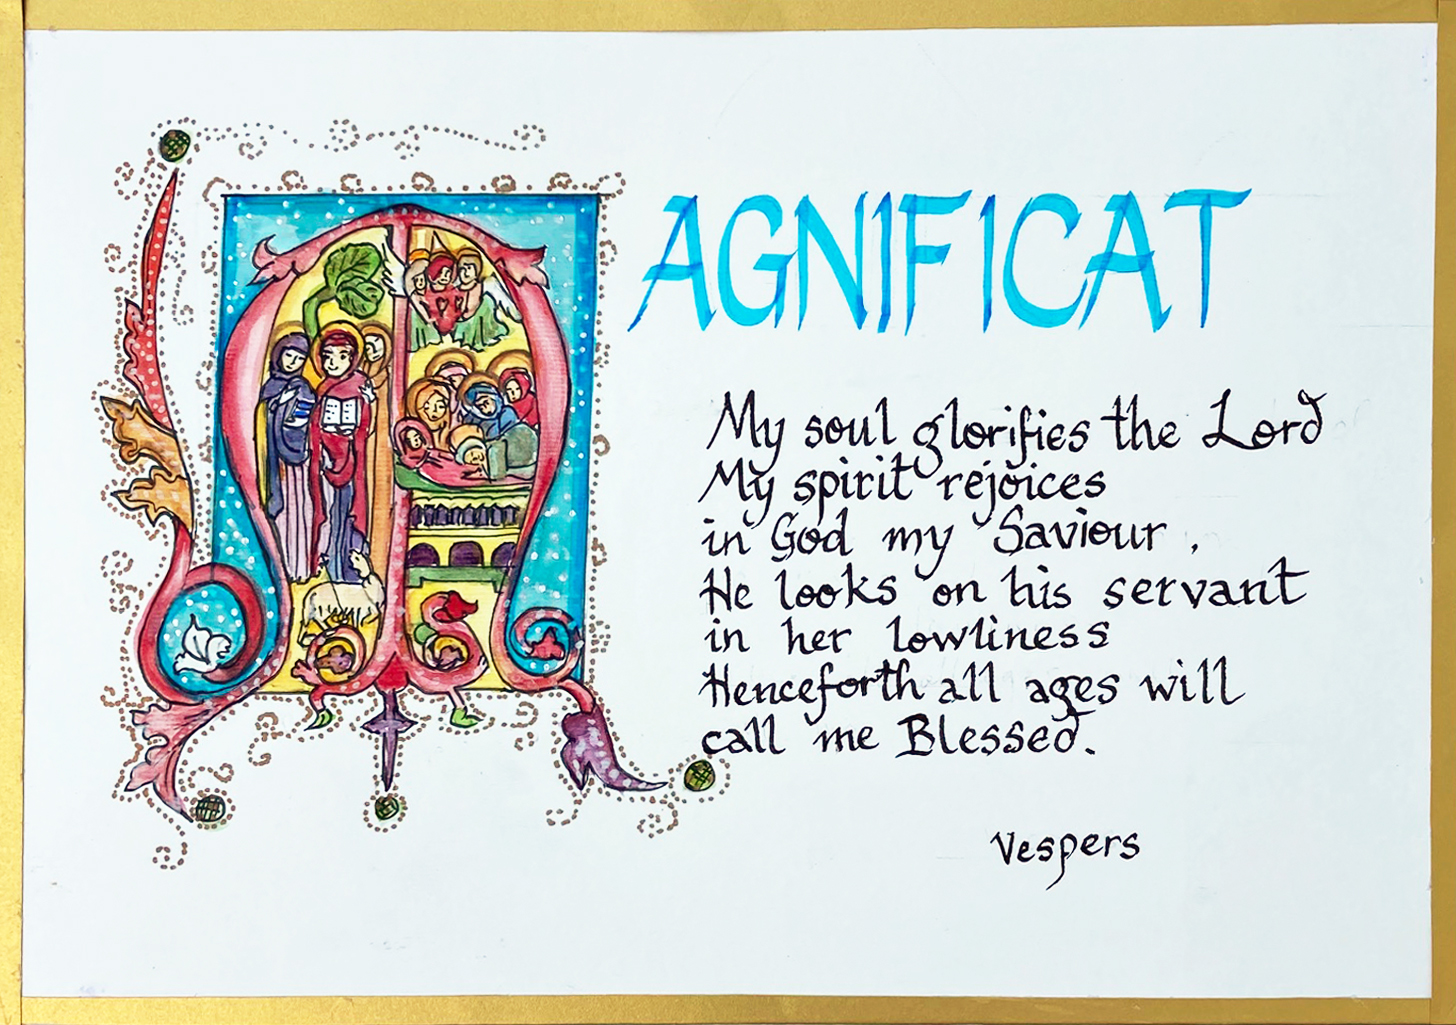 MAGNIFICAT
My soul glorifies the Lord
My spirit rejoices
in God my Saviour,
He looks on his servant
in her lowliness
Henceforth all ages will
call me Blessed.
Vespers